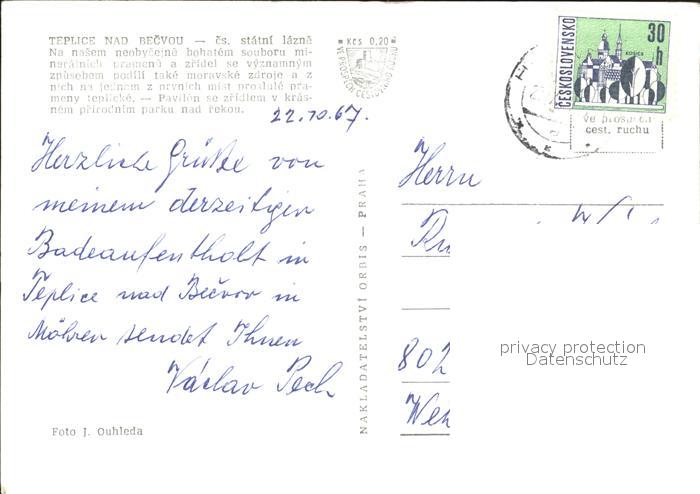 TEPLICE NAD BEČVOU — čs. státní lázně
Na našem neobyčejně bohatém souboru mi-
nerálních pramenů a zřídel se významným
způsobem podílí také moravské zdroje a z
nich na jednom z prvních míst proslulé pra-
meny teplické. — Pavilón se zřídlem v krás-
ném přírodním parku nad řekou.
Kčs 0,20
VE PROSPĚCH CESTOVNÍHO RUCHU
ČESKOSLOVENSKO
30
h
KOŠICE
ve prospěch
cest. ruchu
22.10.67.
Herzliche Grüße von
meinem derzeitigen
Badeaufenthalt in
Teplice nad Bečvou in
Mähren sendet Ihnen
Václav Pech
Foto J. Ouhleda
NAKLADATELSTVÍ ORBIS — PRAHA
Herrn
802
privacy protection
Datenschutz